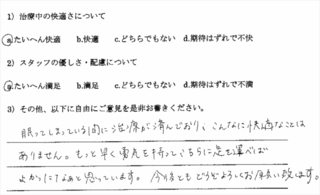 1) 治療中の快適さについて
a.たいへん快適 b.快適 c.どちらでもない d.期待はずれで不快
2) スタッフの優しさ・配慮について
a.たいへん満足 b.満足 c.どちらでもない d.期待はずれで不満
3) その他、以下に自由にご意見を是非お書きください。
眠ってしまっている間に治療が済んでおり、こんなに快適なことは
ありません。もっと早く勇気を持ってこちらに足を運べば
よかったなぁと思っています。今後ともどうぞよろしくお願い致します。